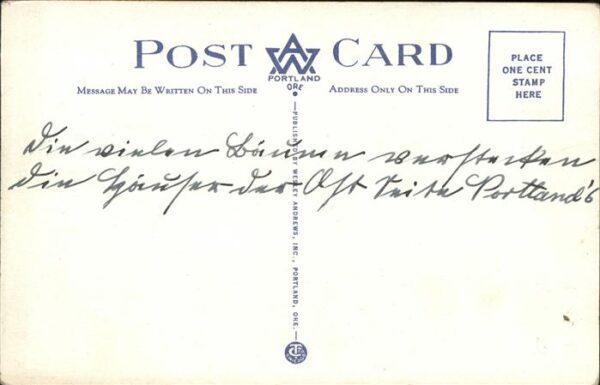 POST CARD
AWA
PORTLAND
ORE
MESSAGE MAY BE WRITTEN ON THIS SIDE
ADDRESS ONLY ON THIS SIDE
PLACE
ONE CENT
STAMP
HERE
Die vielen Bäume verstecken
die Häuser der Ost Seite Portland's
—PUBLISHED BY WESLEY ANDREWS, INC., PORTLAND, ORE.—